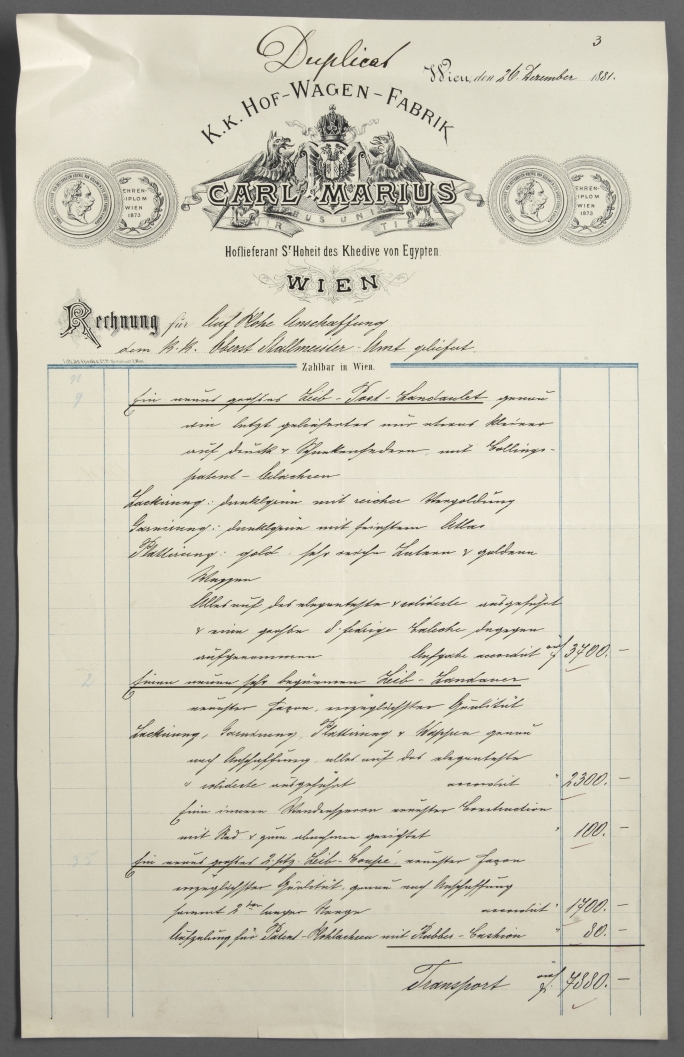 3
Duplicat
Wien, den 26. Dezember 1881.
K. K. HOF-WAGEN-FABRIK
CARL MARIUS
VIRIBUS UNITIS
EHREN-
DIPLOM
WIEN
1873
EHREN-
DIPLOM
WIEN
1873
Hoflieferant Sr Hoheit des Khedive von Egypten.
WIEN
Rechnung für
Anschaffung
dem k. k. Oberst Stallmeister-Amt geliefert
Zahlbar in Wien.
Ein neues großes Leib-Post-Landaulet genau
wie letzt geliefertes nur etwas kleiner
auf Druck & Schneckenfedern, mit Collings-
patent-
Lackirung: dunkelgrün mit reicher Vergoldung
Garnirung: dunkelgrün mit feinstem Atlas
Plattirung: gold, sehr reiche & goldene
Wappen
Alles auf das eleganteste & solideste ausgeführt
& eine große Caleche dagegen
aufgenommen accordirt 3700.–
2
Einen neuen sehr bequemen Leib-Landauer
neuster Façon, vorzüglichster Qualität
Lackirung, Garnirung, Plattirung & Wappen genau
nach Anschaffung, alles auf das eleganteste
" solideste ausgeführt accordirt " 2300.–
Eine neuster Construction
mit Rad & zum abnehmen gerichtet " 100.–
Ein neues großes 2 sitz. Leib-Coupé, neuster Façon
vorzüglichster Qualität, genau nach Anschaffung
sammt 2 langer Stange accordirt " 1700.–
Aufzahlung für Patent- mit Rubber-Cushion " 80.–
Transport 7880.–